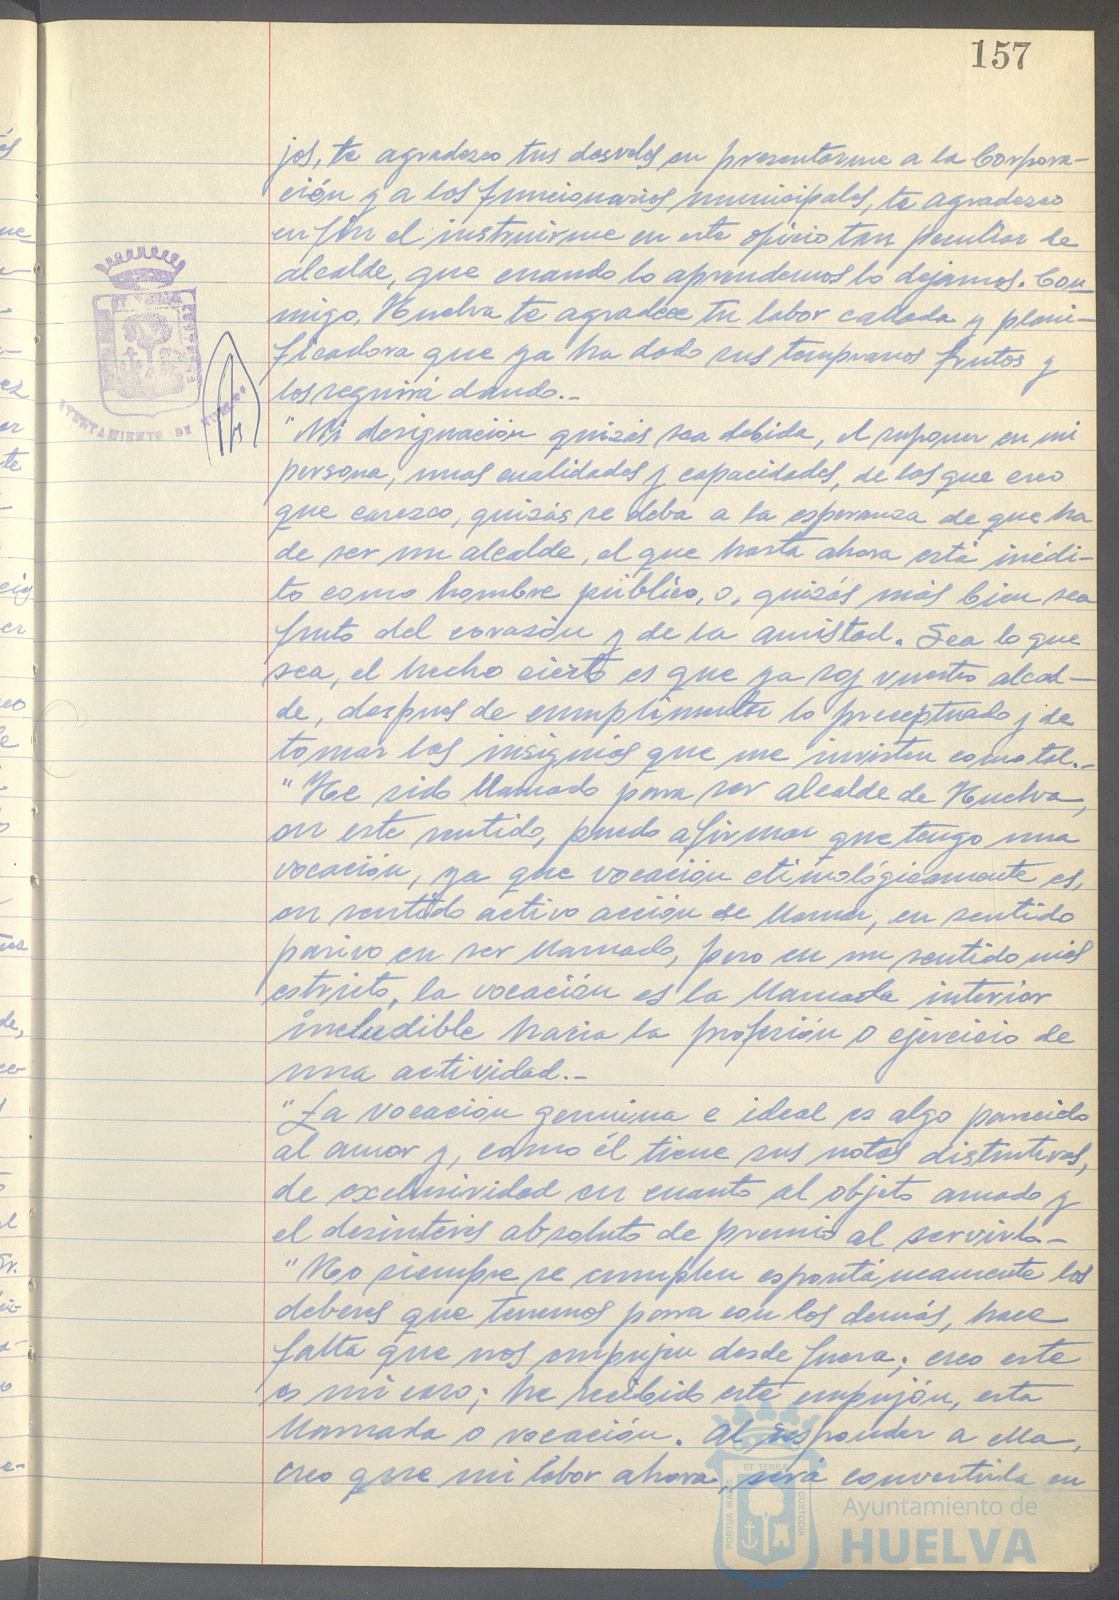 157
jos, te agradezco tus desvelos en presentarme a la Corpora-
ción y a los funcionarios municipales, te agradezco
en fin el instruirme en este oficio tan peculiar de
alcalde, que cuando lo aprendemos lo dejamos. Con-
migo, Huelva te agradece tu labor callada y plani-
ficadora que ya ha dado sus tempranos frutos y
los seguirá dando.-
"Mi designación quizás sea debida, el suponer en mi
persona, unas cualidades y capacidades, de las que creo
que carezco, quizás se deba a la esperanza de que ha
de ser un alcalde, el que hasta ahora está inédi-
to como hombre público, o, quizás más bien sea
fruto del corazón y de la amistad. Sea lo que
sea, el hecho cierto es que ya soy vuestro alcal-
de, despues de cumplimentar lo preceptuado y de
tomar las insignias que me invisten como tal.-
"He sido llamado para ser alcalde de Huelva,
en este sentido, puedo afirmar que tengo una
vocación, ya que vocación etimológicamente es,
en sentido activo acción de llamar, en sentido
pasivo en ser llamado, pero en un sentido más
estricto, la vocación es la llamada interior
ineludible hacia la profesión o ejercicio de
una actividad.-
"La vocación genuina e ideal es algo parecido
al amor y, como él tiene sus notas distintivas,
de exclusividad en cuanto al objeto amado y
el desinteres absoluto de premio al servirla-
"No siempre se cumplen espontáneamente los
deberes que tenemos para con los demás, hace
falta que nos empujen desde fuera; creo este
es mi caso; he recibido este empujón, esta
llamada o vocación. Al responder a ella,
creo que mi labor ahora, será convertirla en
AYUNTAMIENTO DE HUELVA
PORTUS MARIS ET TERRÆ CUSTODIA
Ayuntamiento de
HUELVA